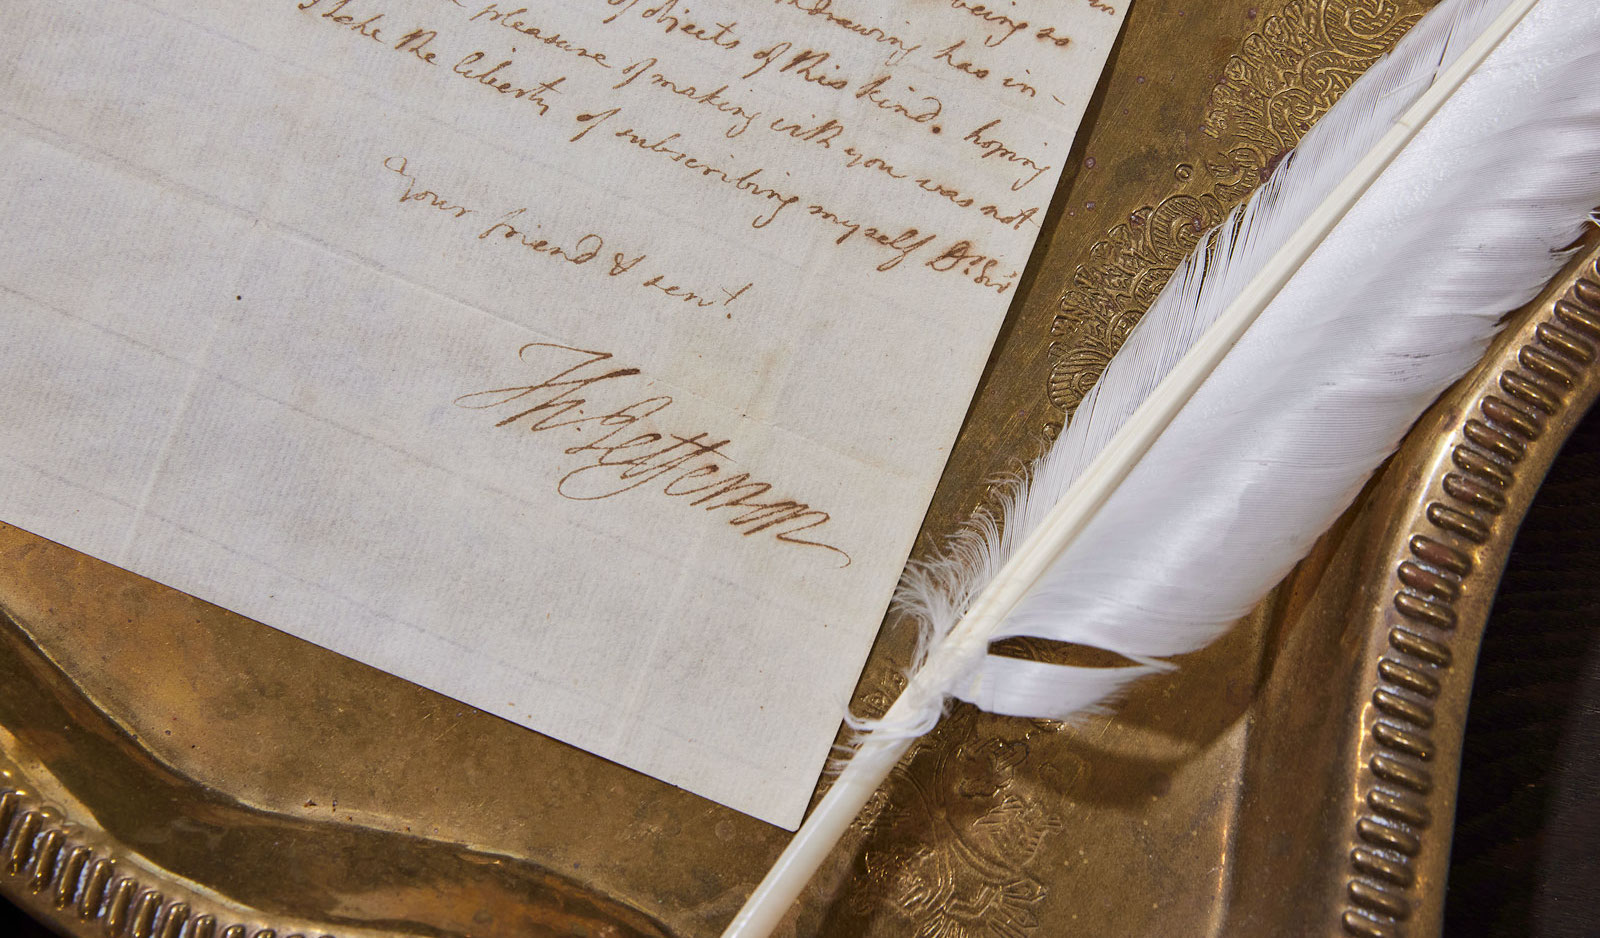 in
being so
drawing has in-
of objects of this kind. hoping
pleasure of making with you was not
take the liberty of subscribing myself Dr. Sir
Your friend & servt.
Th. Jefferson